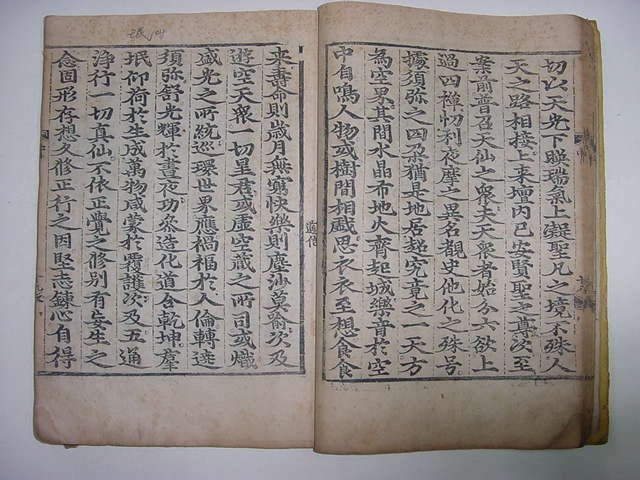 切以天光下臨瑞氣上凝聖凡之境不殊人
天之路相接上來壇内已安賢聖之真次至
案前普召天仙之衆夫天衆者始分六欲上
過四禪忉利夜摩之異名覩史他化之殊号
據須弥之四朶猶是地居起究竟之一天方
為空界其間水晶布地火齊起城樂音於空
中自鳴人物或樹間相戲思衣衣至想食食
来壽命則歲月無窮快樂則塵沙莫喻次及
遊空天衆一切星君或虛空藏之所司或熾
盛光之所統巡環世界應禍福於人倫轉遶
須弥舒光輝於晝夜功叅造化道合乾坤羣
珉仰荷於生成萬物咸蒙於覆護次及五通
浄行一切真仙不依正覺之修別有妄生之
念固形存想久修正行之因堅志鍊心自得
珉